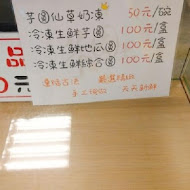 芋圓仙草奶凍 50元/碗
冷凍生鮮芋圓 100元/盒
冷凍生鮮地瓜圓 100元/盒
冷凍生鮮綜合圓 100元/盒
遵循古法
手工製作 天天新鮮
品
元